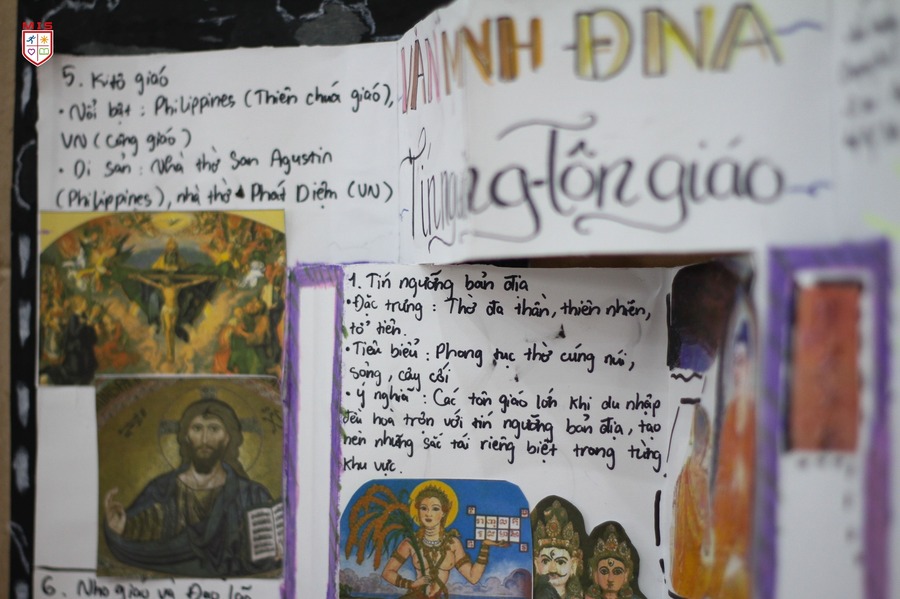 5. Kitô giáo
• Nổi bật : Philippines (Thiên chúa giáo),
VN (Công giáo)
• Di sản : Nhà thờ San Agustin
(Philippines), nhà thờ Phát Diệm (VN)
VĂN MINH ĐNA
Tín ngưỡng-Tôn giáo
1. Tín ngưỡng bản địa
• Đặc trưng : Thờ đa thần, thiên nhiên,
tổ tiên.
• Tiêu biểu : Phong tục thờ cúng núi,
sông, cây cối
• Ý nghĩa : Các tôn giáo lớn khi du nhập
đều hoà trộn với tín ngưỡng bản địa, tạo
nên những sắc tái riêng biệt trong từng
khu vực.
6. Nho giáo và Đạo lão